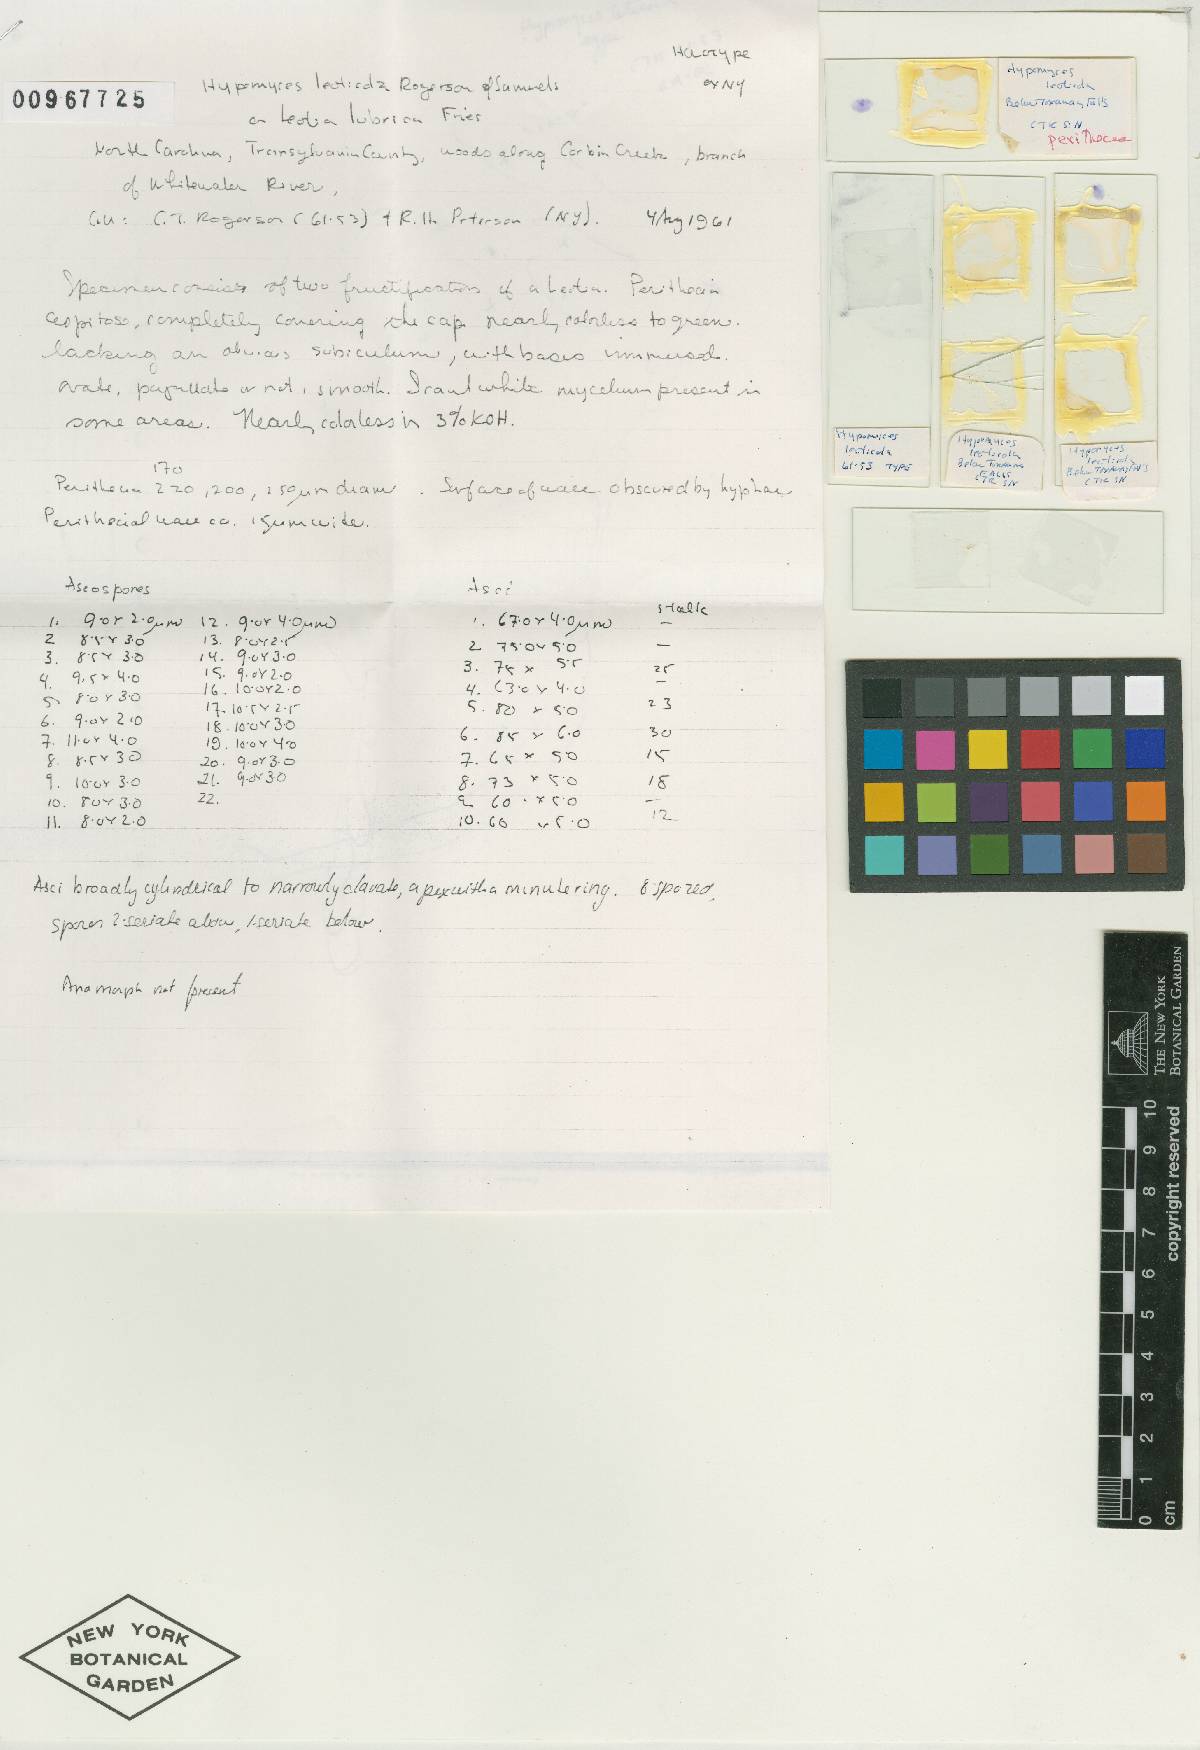 Holotype
ex NY
00967725
Hypomyces leoticola Rogerson & Samuels
on Leotia lubrica Fries
North Carolina, Transylvania County, woods along Corbin Creek, branch
of Whitewater River,
Coll: C.T. Rogerson (61-53) + R.H. Petersen (NY). 4 Aug 1961
Specimen consists of two fructifications of a Leotia. Perithecia
cespitose, completely covering the cap nearly colorless to green.
lacking an obvious subiculum, with bases immersed.
ovate, papillate or not, smooth. Scant white mycelium present in
some areas. Nearly colorless in 3% KOH.
170
Perithecia 220, 200, 150µm diam. Surface of wall obscured by hyphae
Perithecial wall ca. 15µm wide.
Ascospores
1. 9.0 x 2.0µm
2 8.5 x 3.0
3. 8.5 x 3.0
4. 9.5 x 4.0
5. 8.0 x 3.0
6. 9.0 x 2.0
7. 11.0 x 4.0
8. 8.5 x 3.0
9. 10.0 x 3.0
10. 8.0 x 3.0
11. 8.0 x 2.0
12. 9.0 x 4.0µm
13. 8.0 x 2.5
14. 9.0 x 3.0
15. 9.0 x 2.0
16. 10.0 x 2.0
17. 10.5 x 2.5
18. 10.0 x 3.0
19. 10.0 x 4.0
20. 9.0 x 3.0
21. 9.0 x 3.0
22.
Asci stalk
1. 67.0 x 4.0µm –
2. 75.0 x 5.0 –
3. 75 x 5.5 25
4. 63.0 x 4.0 –
5. 80 x 5.0 23
6. 85 x 6.0 30
7. 65 x 5.0 15
8. 73 x 5.0 18
9. 60 x 5.0 –
10. 60 x 5.0 12
Asci broadly cylindrical to narrowly clavate, apex with a minute ring. 8-spored,
spores 2-seriate above, 1-seriate below.
Anamorph not present
Hypomyces
leoticola
Below Toxaway Falls
CTR SN
perithecia
Hypomyces
leoticola
61-53 TYPE
Hypomyces
leoticola
Below Toxaway
FALLS
CTR SN
Hypomyces
leoticola
Below Toxaway Falls
CTR SN
THE NEW YORK
BOTANICAL GARDEN
copyright reserved
0 1 2 3 4 5 6 7 8 9 10
cm
NEW YORK
BOTANICAL
GARDEN